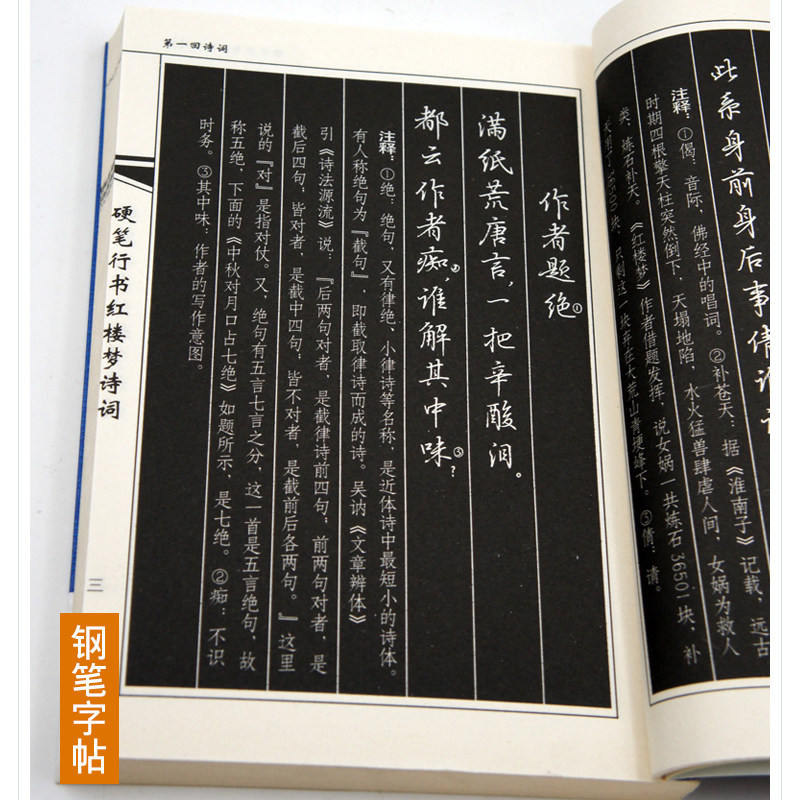 此系身前身后事倩谁
注释：①偈：音际，佛经中的唱词。②补苍天：据《淮南子》记载，远古
时期四根擎天柱突然倒下，天塌地陷，水火猛兽肆虐人间，女娲为救人
类，炼石补天。《红楼梦》作者借题发挥，说女娲一共炼石36501块，补
天用了36500块，只剩这一块弃在大荒山青埂峰下。③倩：请。
第一回诗词
作者题绝①
满纸荒唐言，一把辛酸泪。
都云作者痴②，谁解其中味③？
注释：①绝：绝句，又有律绝、小律诗等名称，是近体诗中最短小的诗体。
有人称绝句为『截句』，即截取律诗而成的诗。吴讷《文章辨体》
引《诗法源流》说：『后两句对者，是截律诗前四句；前两句对者，是
截后四句；皆对者，是截中四句；皆不对者，是截前后各两句。』这里
说的『对』是指对仗。又，绝句有五言七言之分，这一首是五言绝句，故
称五绝，下面的《中秋对月口占七绝》如题所示，是七绝。②痴：不识
时务。③其中味：作者的写作意图。
硬笔行书红楼梦诗词
三
钢笔字帖